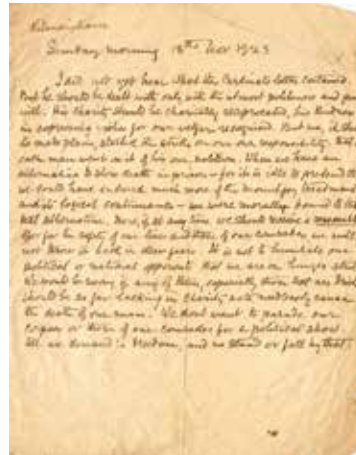 Kilmainham
Sunday morning 18th Nov 1923
I did not yet hear what the Cardinal's letter contained.
But he should be dealt with only with the utmost politeness and
with. His charity should be charitably reciprocated, his kindness
in expressing for our recognised. But we,
be made plain, started the strike on our own responsibility. that
each man went in it of his own volition. When we have an
alternative to slow death in prison – for it is idle to pretend that
we could have endured much more of the treatment
and its logical continuance – we were morally bound to the
alternative. Now, if at any time we should receive a
offer for the safety of our lives and those of our comrades we will
not throw it back in their faces. It is not to humiliate our
political or national opponents that we are on hunger strike
We would be sorry if any of them, especially those that are Irish
should be so far lacking in charity as to needlessly cause
the death of one man. We don't want to parade our
corpses or those of our comrades for a political show.
All we demand is freedom, and we stand or fall by that.